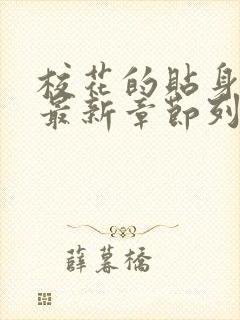 校花的貼身
最新章節列
薛暮橋